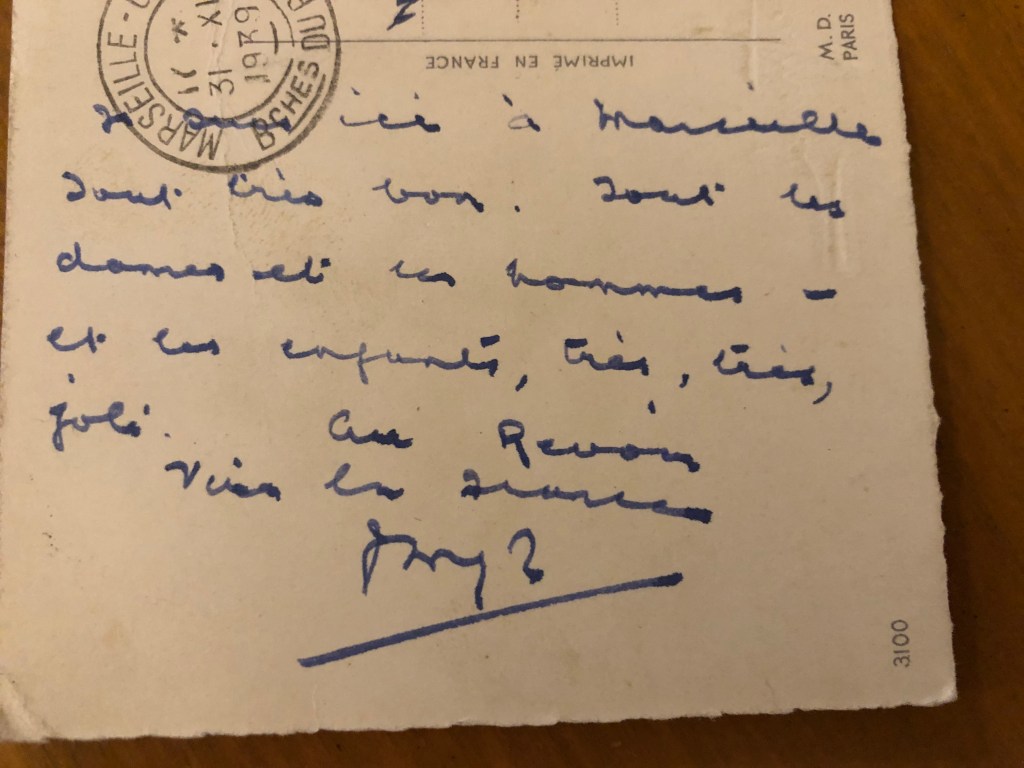 MARSEILLE
31 · XI
1939
BCHES DU
M. D.
PARIS
IMPRIMÉ EN FRANCE
ici à Marseille
tout très bon. Tout les
dames et les hommes –
et les enfants, très, très,
joli. Au Revoir
Vive la France
3100